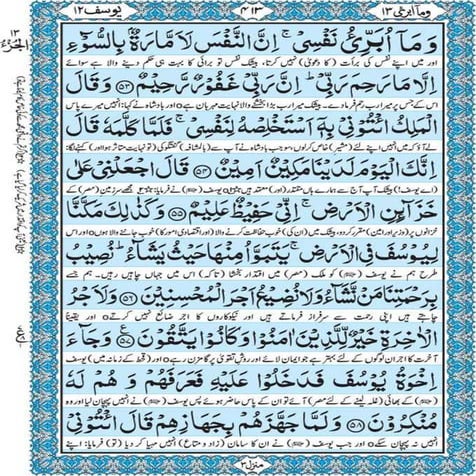 وما ابرئ ١٣
٤١٣
يوسف ١٢
وَمَآ اُبَرِّئُ نَفْسِیْ ۚ اِنَّ النَّفْسَ لَاَمَّارَةٌۢ بِالسُّوْٓءِ
اور میں اپنے نفس کی برأت (کا دعویٰ) نہیں کرتا، بیشک نفس تو برائی کا بہت ہی حکم دینے والا ہے سوائے
اِلَّا مَا رَحِمَ رَبِّیْ ؕ اِنَّ رَبِّیْ غَفُوْرٌ رَّحِیْمٌ ۝۵۳ وَقَالَ
اس کے جس پر میرا رب رحم فرما دے۔ بیشک میرا رب بڑا بخشنے والا نہایت مہربان ہے o اور بادشاہ نے کہا: انہیں میرے پاس
الْمَلِكُ ائْتُوْنِیْ بِهٖٓ اَسْتَخْلِصْهُ لِنَفْسِیْ ۚ فَلَمَّا كَلَّمَهٗ قَالَ
لے آؤ کہ میں انہیں اپنے لئے (مشیر) خاص کر لوں، سو جب بادشاہ نے آپ سے (بالمشافہ) گفتگو کی (تو نہایت متاثر ہوا اور) کہنے لگا:
اِنَّكَ الْیَوْمَ لَدَیْنَا مَكِیْنٌ اَمِیْنٌ ۝۵۴ قَالَ اجْعَلْنِیْ عَلٰی
(اے یوسف!) بیشک آپ آج سے ہمارے ہاں مقتدر (اور) معتمد ہیں o یوسف (علیہ السلام) نے فرمایا: مجھے سرزمین (مصر) کے
خَزَآىِٕنِ الْاَرْضِ ۚ اِنِّیْ حَفِیْظٌ عَلِیْمٌ ۝۵۵ وَكَذٰلِكَ مَكَّنَّا
خزانوں پر (وزیر اور امین) مقرر کر دو، بیشک میں (ان کی) خوب حفاظت کرنے والا (اور اقتصادی امور کا) خوب جاننے والا ہوں o اور اس
لِیُوْسُفَ فِی الْاَرْضِ ۚ یَتَبَوَّاُ مِنْهَا حَیْثُ یَشَآءُ ؕ نُصِیْبُ
طرح ہم نے یوسف (علیہ السلام) کو ملک (مصر) میں اقتدار بخشا (تاکہ) اس میں جہاں چاہیں رہیں۔ ہم جسے
بِرَحْمَتِنَا مَنْ نَّشَآءُ وَلَا نُضِیْعُ اَجْرَ الْمُحْسِنِیْنَ ۝۵۶ وَلَاَجْرُ
چاہتے ہیں اپنی رحمت سے سرفراز فرماتے ہیں اور نیکوکاروں کا اجر ضائع نہیں کرتے o اور یقیناً
الْاٰخِرَةِ خَیْرٌ لِّلَّذِیْنَ اٰمَنُوْا وَكَانُوْا یَتَّقُوْنَ ۝۵۷ وَجَآءَ
آخرت کا اجر ان لوگوں کے لئے بہتر ہے جو ایمان لائے اور روشِ تقویٰ پر گامزن رہے o اور (قحط کے زمانہ میں) یوسف
اِخْوَةُ یُوْسُفَ فَدَخَلُوْا عَلَیْهِ فَعَرَفَهُمْ وَ هُمْ لَهٗ
(علیہ السلام) کے بھائی (غلہ لینے کے لئے مصر) آئے تو ان کے پاس حاضر ہوئے پس یوسف (علیہ السلام) نے انہیں پہچان لیا اور وہ
مُنْكِرُوْنَ ۝۵۸ وَلَمَّا جَهَّزَهُمْ بِجَهَازِهِمْ قَالَ ائْتُوْنِیْ
انہیں نہ پہچان سکے o اور جب یوسف (علیہ السلام) نے ان کا سامان (زاد و متاع) انہیں مہیا کر دیا (تو) فرمایا: اپنے
منزل ٣
١٣
الجزء